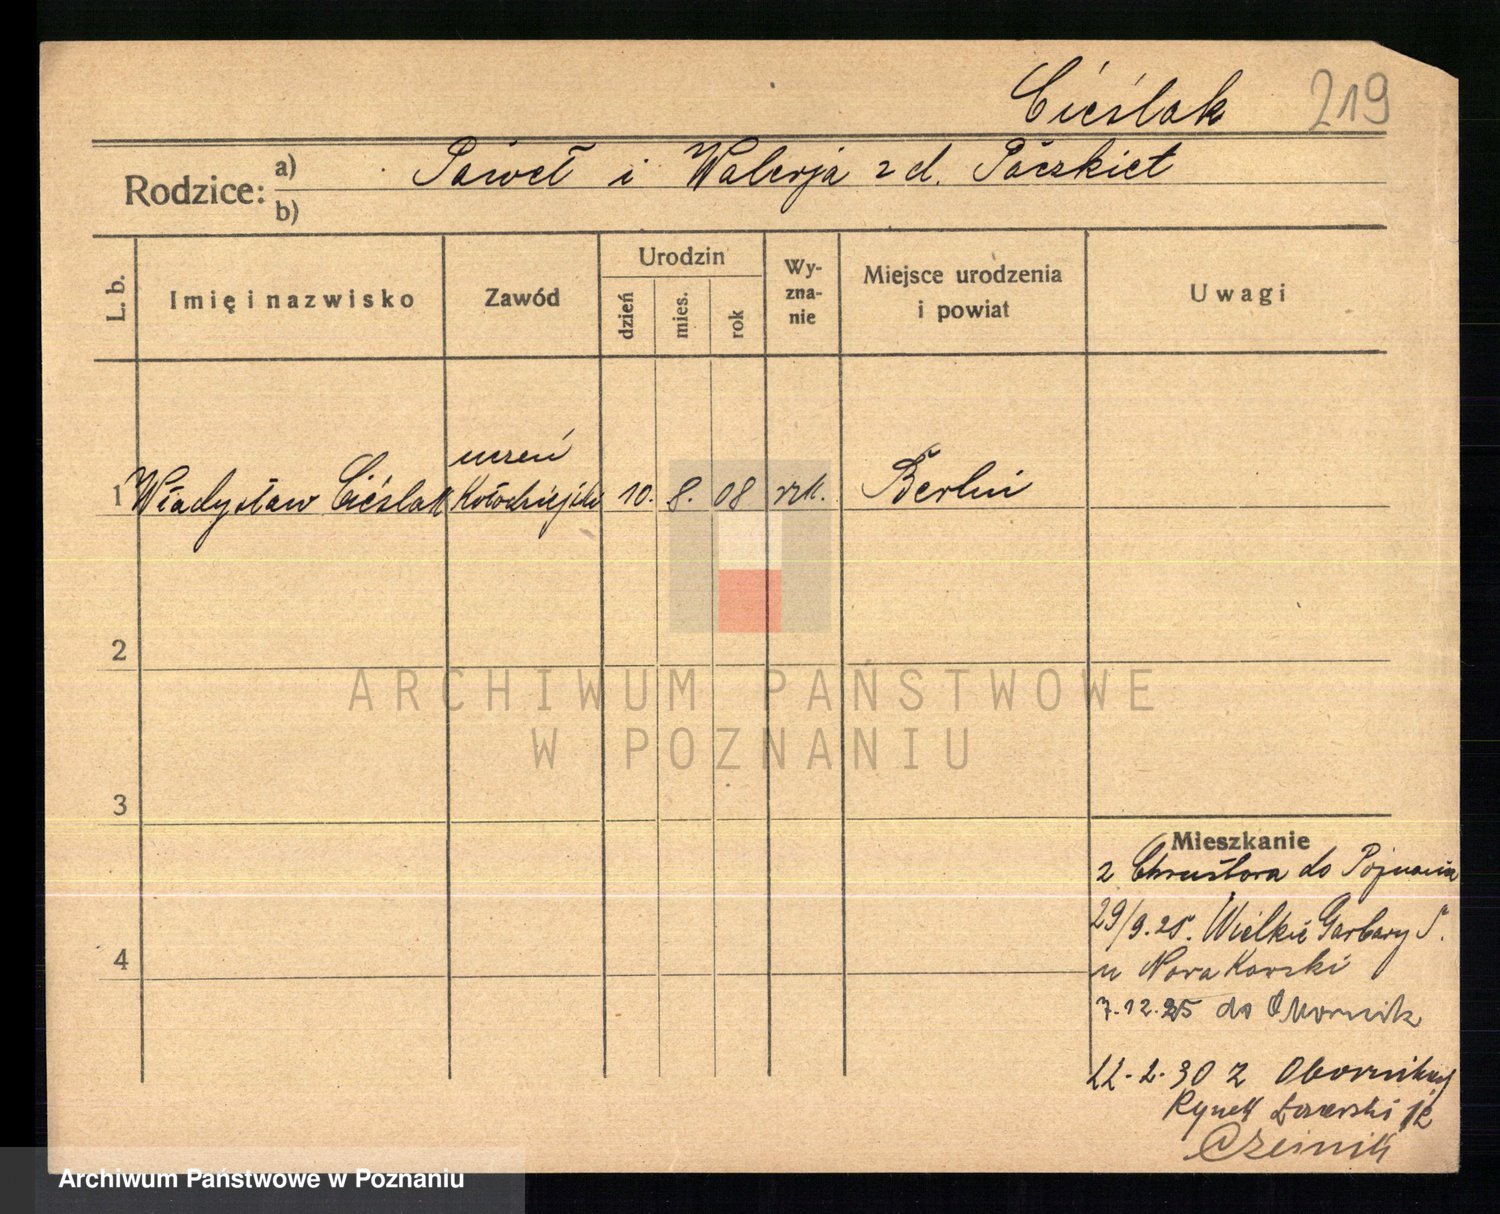 Cieślak 219
Rodzice: a) Paweł i Walerja z d. Paczkiet
b)
L. b.
Imię i nazwisko
Zawód
Urodzin
dzień
mies.
rok
Wy-
zna-
nie
Miejsce urodzenia
i powiat
Uwagi
uczeń
1 Władysław Cieślak Kołodziejski 10. 8. 08 rzk. Berlin
2
ARCHIWUM PAŃSTWOWE
W POZNANIU
3
Mieszkanie
z do Poznania
4
29/9.25. Wielkie Garbary 5.
u Nowakowski
7.12.25 do Obornik
22.2.30 z Obornik
Rynek 12
Archiwum Państwowe w Poznaniu